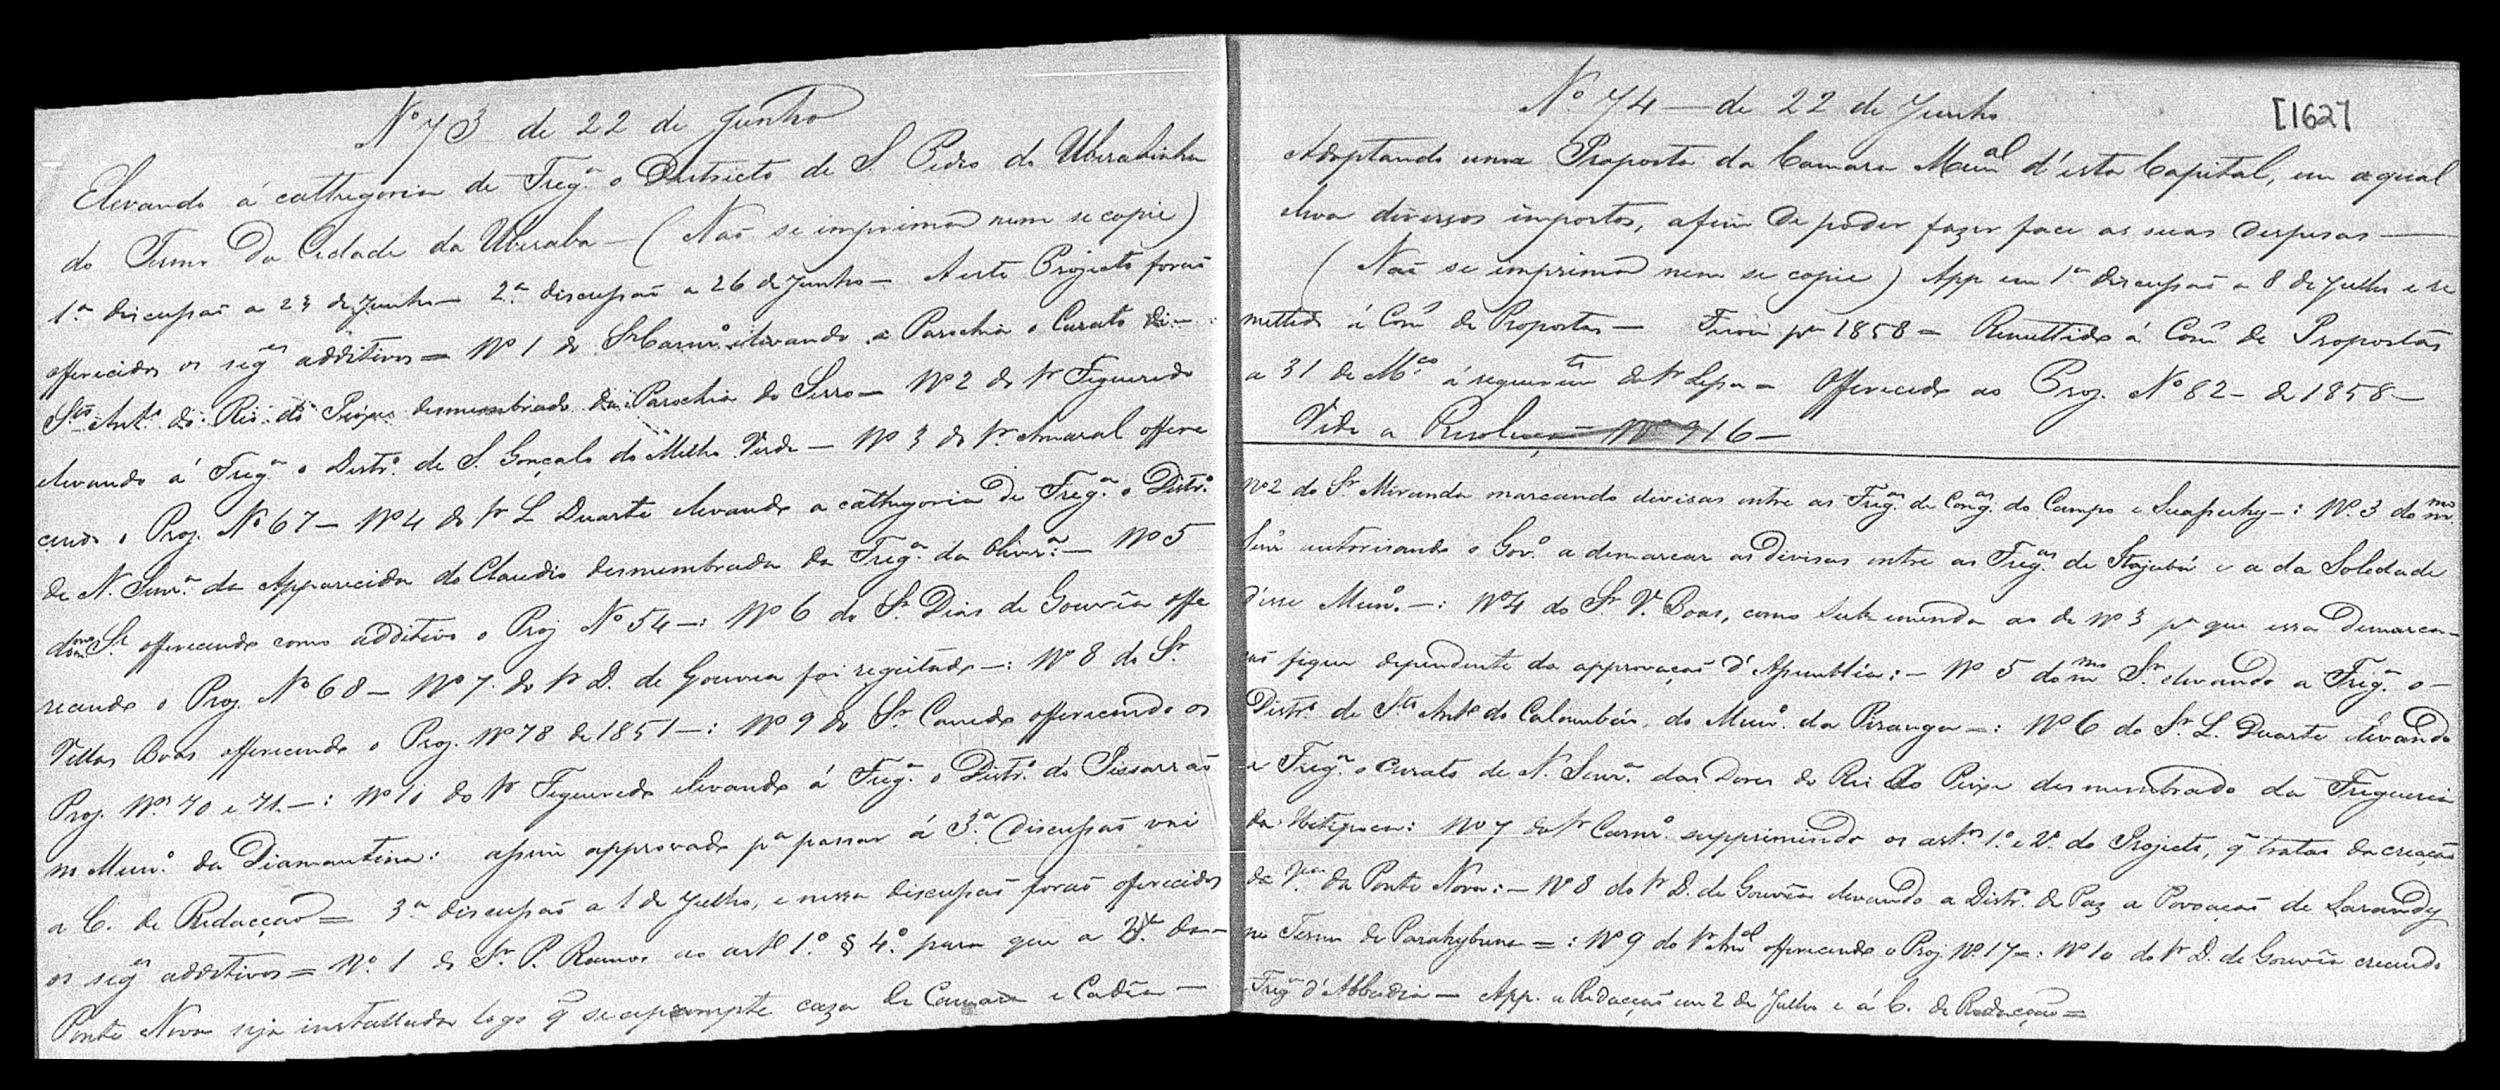 Nº 73 de 22 de Junho
Elevando á cathegoria de Fregª o Districto de S. Pedro do Uberabinha
do Termo da Cidade da Uberaba — (Naõ se imprimio nem se copie)
1ª discussaõ a 23 de Junho — 2ª discussaõ a 26 de Junho — A este Projecto foraõ
offerecidos os seges additivos = Nº 1 do Sr Carnrº elevando a Parochia o Curato di-
Stº Antº do Rio do Peixe desmembrado da Parochia do Serro — Nº 2 do Sr Figueredo
elevando á Fregª o Distrº de S. Gonçalo do Milho Verde — Nº 3 do Sr Amaral offere
cendo o Proj. Nº 67 — Nº 4 do Sr L Duarte elevando a cathegoria de Fregª o Distrº
de N. Senrª da Apparecida do Claudio desmembrada da Fregª da Olivrª — Nº 5
do mmo Sr offerecendo como additivo o Proj Nº 54 —: Nº 6 do Sr Dias de Gouvêa offe
recendo o Proj. Nº 68 — Nº 7 do Sr D. de Gouvea foi regeitado —: Nº 8 do Sr
Villas Boas offerecendo o Proj. Nº 78 de 1851 —: Nº 9 do Sr Canedo offerecendo os
Proj. Nos 70 e 71. —: Nº 10 do Sr Figueiredo elevando á Fregª o Distrº do Pissarraõ
no Munº da Diamantina: assim approvado pª passar á 3ª discussaõ vai
a C. de Redacçaõ = 3ª discussaõ a 1 de Julho, e nessa discussaõ foraõ offerecidos
os seges additivos = Nº 1 do Sr P. Ramos ao artº 1º § 4º para que a Vª da
Ponte Nova seja installada logo q se apromte caza de Camara e Cadêa —
Nº 74 — de 22 de Junho
[162]
Adoptando uma Proposta da Camara Munal d'esta Capital, em a qual
eleva diversos impostos, afim de poder fazer face as suas despesas —
(Naõ se imprimio nem se copie) App em 1ª discussaõ a 8 de Julho e re
mettido á Com de Propostas — Ficou pª 1858 = Remettido á Com de Propostas
a 31 de Mço á requerimto do Sr Lessa = Offerecido ao Proj. Nº 82 — de 1858 —
Vide a Resoluçaõ Nº 916 —
Nº 2 do Sr Miranda marcando divisas entre as Fregas de Congas do Campo e Suassuhy —: Nº 3 do mmo
Senr autorisando o Govº a demarcar as divisas entre as Fregas de Itajubá e a da Soledade
d'esse Munº —: Nº 4 do Sr V. Boas, como sub emenda as de Nº 3 pª que essa demarca-
çaõ fique dependente da approvaçaõ d'Assemblea: — Nº 5 do mmo Sr elevando a Fregª o —
Distrº de Stº Antº do Calambáu, do Munº da Piranga —: Nº 6 do Sr L. Duarte elevando
a Fregª o Curato de N. Senrª das Dores do Rio do Peixe desmembrado da Freguesia
da Ibitipoca: Nº 7 do Sr Carnrº supprimindo os artos 1º e 2º do Projecto, q trataõ da creaçaõ
da Vª da Ponte Nova: — Nº 8 do Sr D. de Gouvêa elevando a Distrº de Paz a Povoaçaõ de Sarandy
no Termo de Parahybuna =: Nº 9 do Sr Aml offerecendo o Proj. Nº 17 =: Nº 10 do Sr D. de Gouvêa creando
Fregª d'Abbadia — App. a Redacçaõ em 2 de Julho e á C. de Redacçaõ =